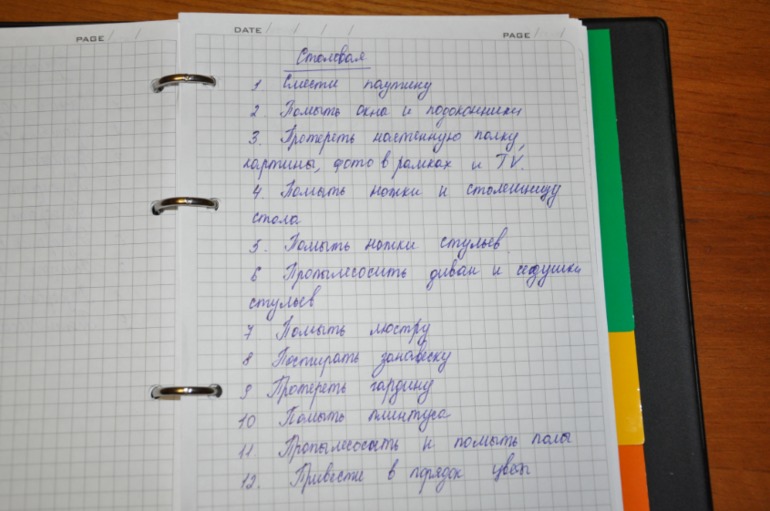 PAGE / /
DATE / / PAGE / /
Столовая
1 Смести паутину
2 Помыть окна и подоконники
3. Протереть настенную полку,
картины, фото в рамках и TV.
4. Помыть ножки и столешницу
стола
5. Помыть ножки стульев
6 Пропылесосить диван и седушки
стульев
7 Помыть люстру
8 Постирать занавеску
9 Протереть гардину
10 Помыть плинтуса
11 Пропылесосить и помыть полы
12. Привести в порядок цветы